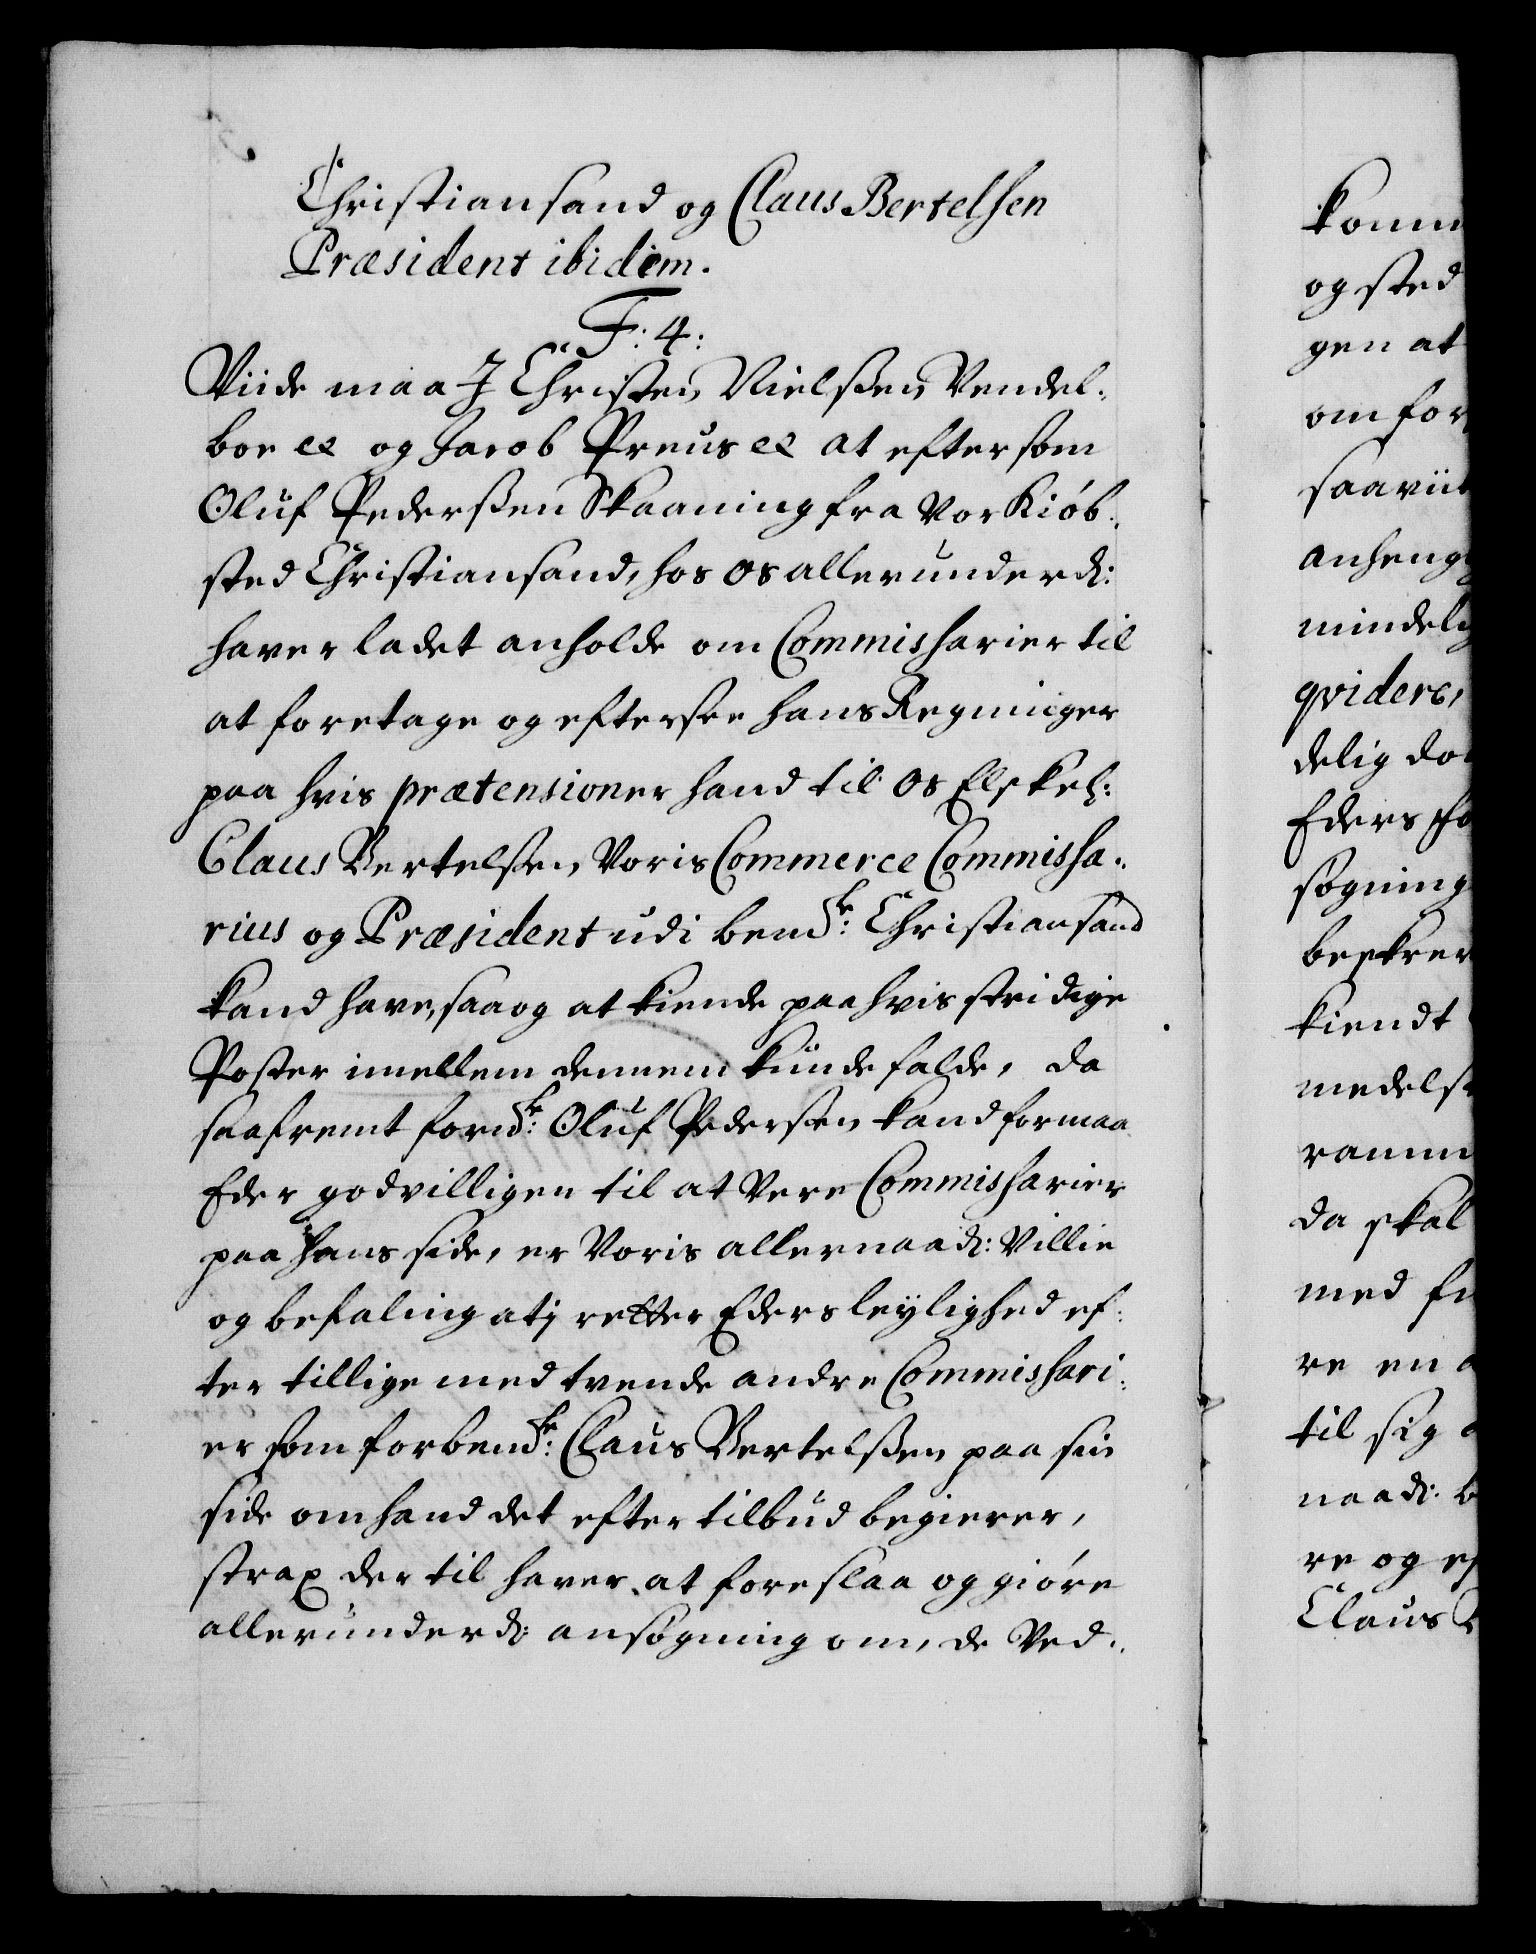 Christiansand og Claus Bertelsen
Præsident ibidem.
F: 4:
Viide maa J Christen Nielssen Vendel:
boe &c og Jacob Preus &c at eftersom
Oluf Pederssen Skaaning fra Vor Kiøb:
sted Christiansand, hos os allerunderd:
haver ladet anholde om Commissarier til
at foretage og eftersee hans Regninger
paa hvis prætensioner hand til os Elskel:
Claus Bertelssen, Voris Commerce Commissa:
rius og Præsident udi bemte: Christiansand
kand have, saa og at kiende paa hvis stridige
Poster imellem dennem kunde falde, da
saafremt fornte: Oluf Pederssen kand formaa
Eder godvilligen til at Vere Commissarier
paa hans side, er Voris allernaad: Villie
og befaling at j retter Eders leylighed ef:
ter tillige med tvende andre Commissari:
er som forbemte: Claus Bertelssen paa sin
side om hand det efter tilbud begierer,
strax der til haver at foreslaa og giøre
allerunderd: ansøgning om, de Ved:
komm
og sted
gen at
om for
saa viit
anheng
mindeli
qvidere,
delig do
Eders
søgning
beskrev
kiendt
medels
ramm
da skal
med
re en
til sig
naad:
re og
Claus